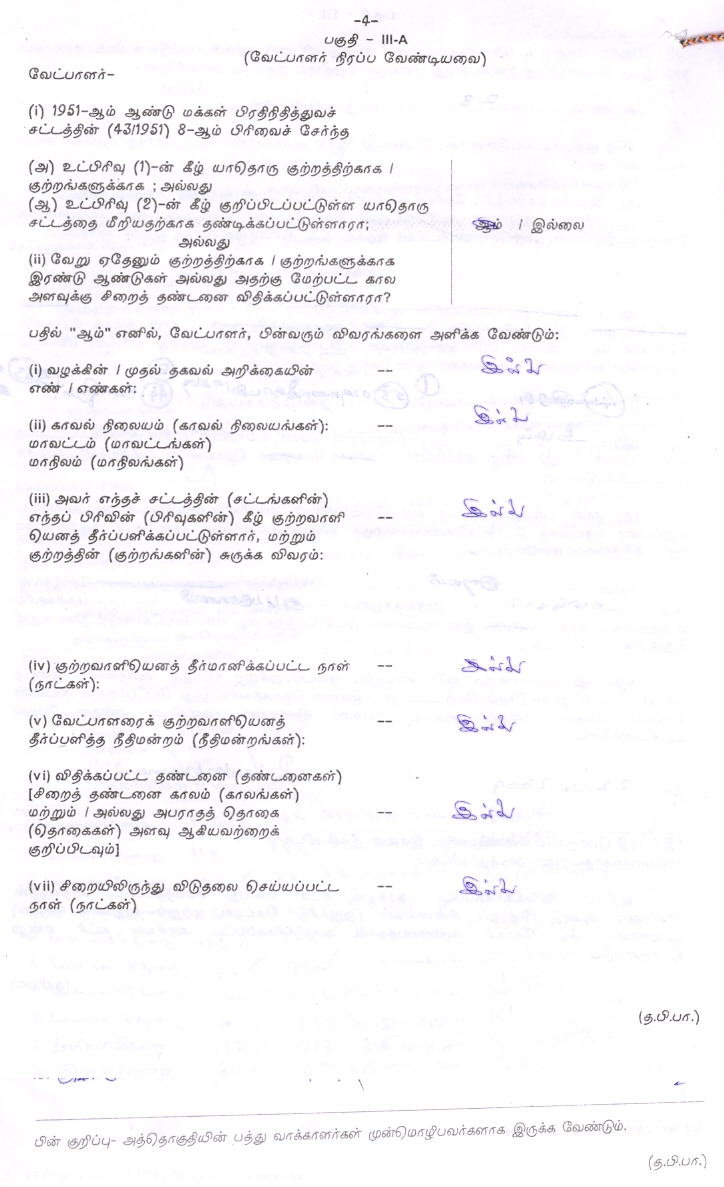 -4-
பகுதி - III-A
(வேட்பாளர் நிரப்ப வேண்டியவை)
வேட்பாளர்-
(i) 1951-ஆம் ஆண்டு மக்கள் பிரதிநிதித்துவச்
சட்டத்தின் (43/1951) 8-ஆம் பிரிவைச் சேர்ந்த
(அ) உட்பிரிவு (1)-ன் கீழ் யாதொரு குற்றத்திற்காக /
குற்றங்களுக்காக ; அல்லது
(ஆ) உட்பிரிவு (2)-ன் கீழ் குறிப்பிடப்பட்டுள்ள யாதொரு
சட்டத்தை மீறியதற்காக தண்டிக்கப்பட்டுள்ளாரா; ஆம் / இல்லை
அல்லது
(ii) வேறு ஏதேனும் குற்றத்திற்காக / குற்றங்களுக்காக
இரண்டு ஆண்டுகள் அல்லது அதற்கு மேற்பட்ட கால
அளவுக்கு சிறைத் தண்டனை விதிக்கப்பட்டுள்ளாரா?
பதில் "ஆம்" எனில், வேட்பாளர், பின்வரும் விவரங்களை அளிக்க வேண்டும்:
(i) வழக்கின் / முதல் தகவல் அறிக்கையின் -- இல்லை
எண் / எண்கள்:
(ii) காவல் நிலையம் (காவல் நிலையங்கள்): -- இல்லை
மாவட்டம் (மாவட்டங்கள்)
மாநிலம் (மாநிலங்கள்)
(iii) அவர் எந்தச் சட்டத்தின் (சட்டங்களின்)
எந்தப் பிரிவின் (பிரிவுகளின்) கீழ் குற்றவாளி -- இல்லை
யெனத் தீர்ப்பளிக்கப்பட்டுள்ளார், மற்றும்
குற்றத்தின் (குற்றங்களின்) சுருக்க விவரம்:
(iv) குற்றவாளியெனத் தீர்மானிக்கப்பட்ட நாள் -- இல்லை
(நாட்கள்):
(v) வேட்பாளரைக் குற்றவாளியெனத் -- இல்லை
தீர்ப்பளித்த நீதிமன்றம் (நீதிமன்றங்கள்):
(vi) விதிக்கப்பட்ட தண்டனை (தண்டனைகள்)
[சிறைத் தண்டனை காலம் (காலங்கள்)
மற்றும் / அல்லது அபராதத் தொகை -- இல்லை
(தொகைகள்) அளவு ஆகியவற்றைக்
குறிப்பிடவும்]
(vii) சிறையிலிருந்து விடுதலை செய்யப்பட்ட -- இல்லை
நாள் (நாட்கள்)
(த.பி.பா.)
பின் குறிப்பு- அத்தொகுதியின் பத்து வாக்காளர்கள் முன்மொழிபவர்களாக இருக்க வேண்டும்.
(த.பி.பா.)